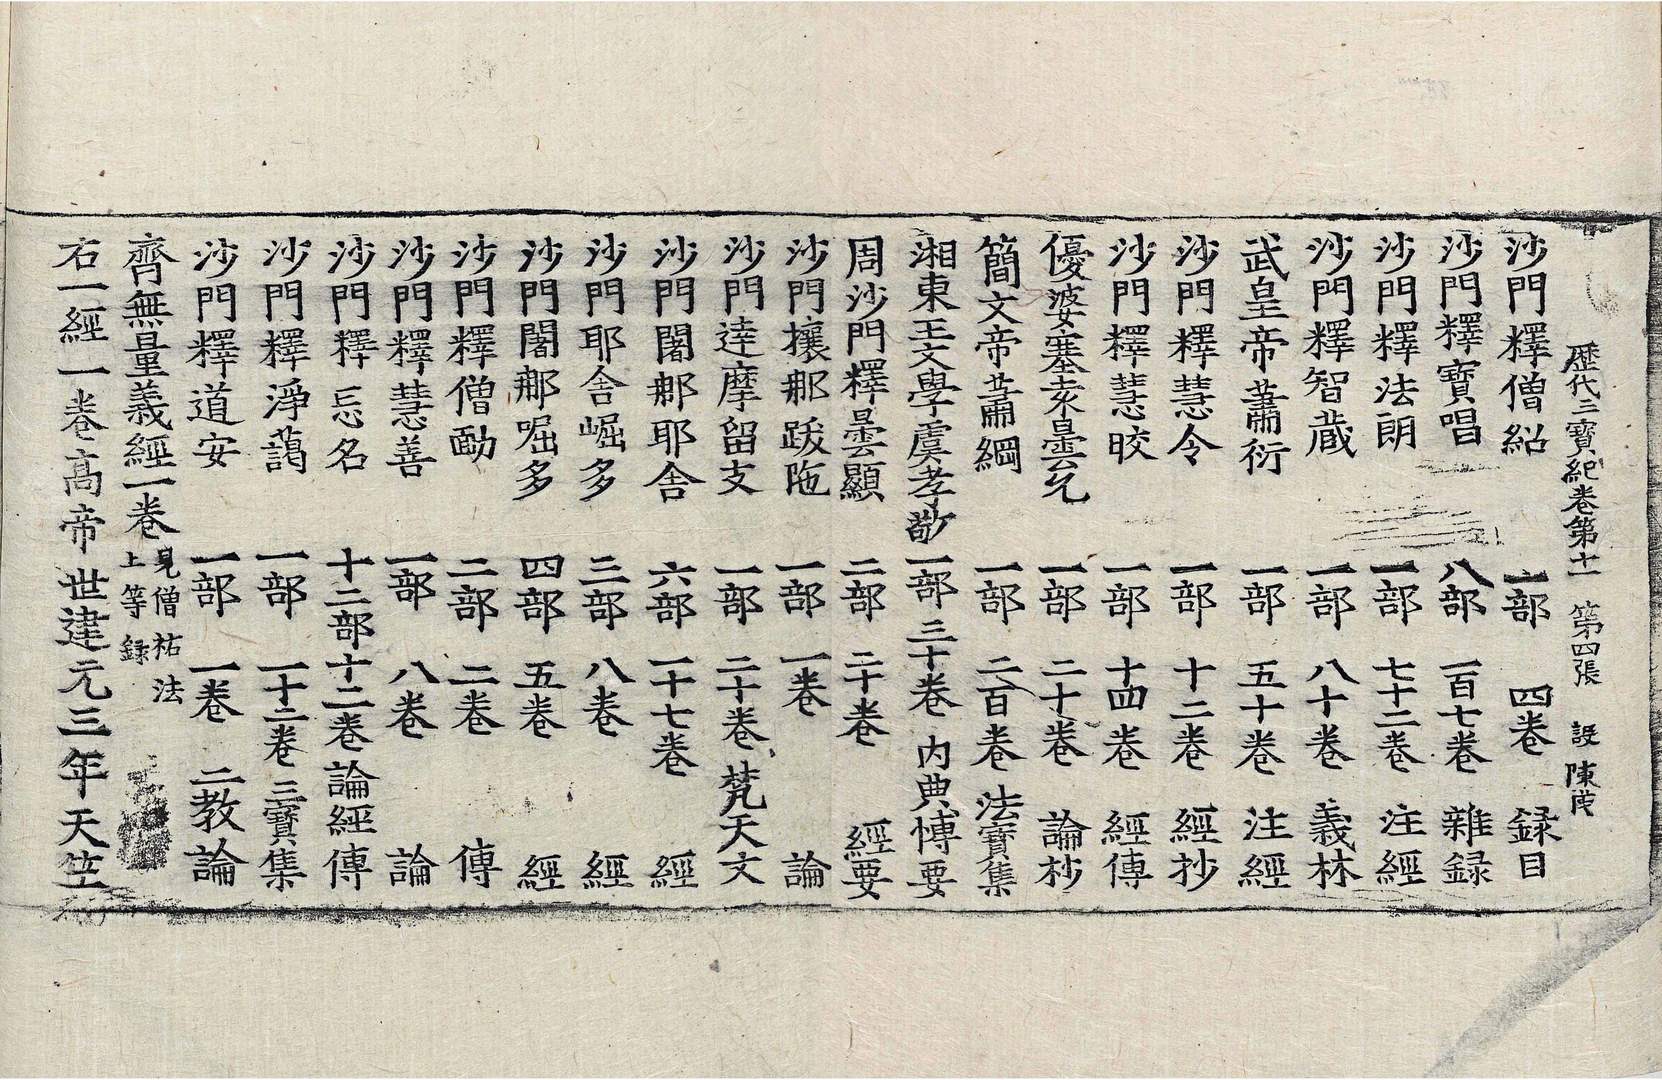 歷代三寶紀卷第十一　第四張　設　陳戍
沙門釋僧紹　一部　四卷　録目
沙門釋寶唱　八部　一百七卷　雜録
沙門釋法朗　一部　七十二卷　注經
沙門釋智蔵　一部　八十卷　義林
武皇帝蕭衍　一部　五十卷　注經
沙門釋慧令　一部　十二卷　經抄
沙門釋慧晈　一部　十四卷　經傳
優婆塞袁曇允　一部　二十卷　論抄
簡文帝蕭綱　一部　二百卷　法寶集
湘東王文學虞孝敬　一部　三十卷　内典愽要
周沙門釋曇顯　二部　二十卷　經要
沙門攘郍跋陁　一部　一卷　論
沙門達摩留支　一部　二十卷　梵天文
沙門闍郍耶舎　六部　一十七卷　經
沙門耶舎崛多　三部　八卷　經
沙門闍郍崛多　四部　五卷　經
沙門釋僧勔　二部　二卷　傳
沙門釋慧善　一部　八卷　論
沙門釋忘名　十二部　十二卷　論經傳
沙門釋淨藹　一部　一十二卷　三寶集
沙門釋道安　一部　一卷　二教論
齊無量義經一卷　見僧祐法
上等録
右一經一卷髙帝世建元三年天竺